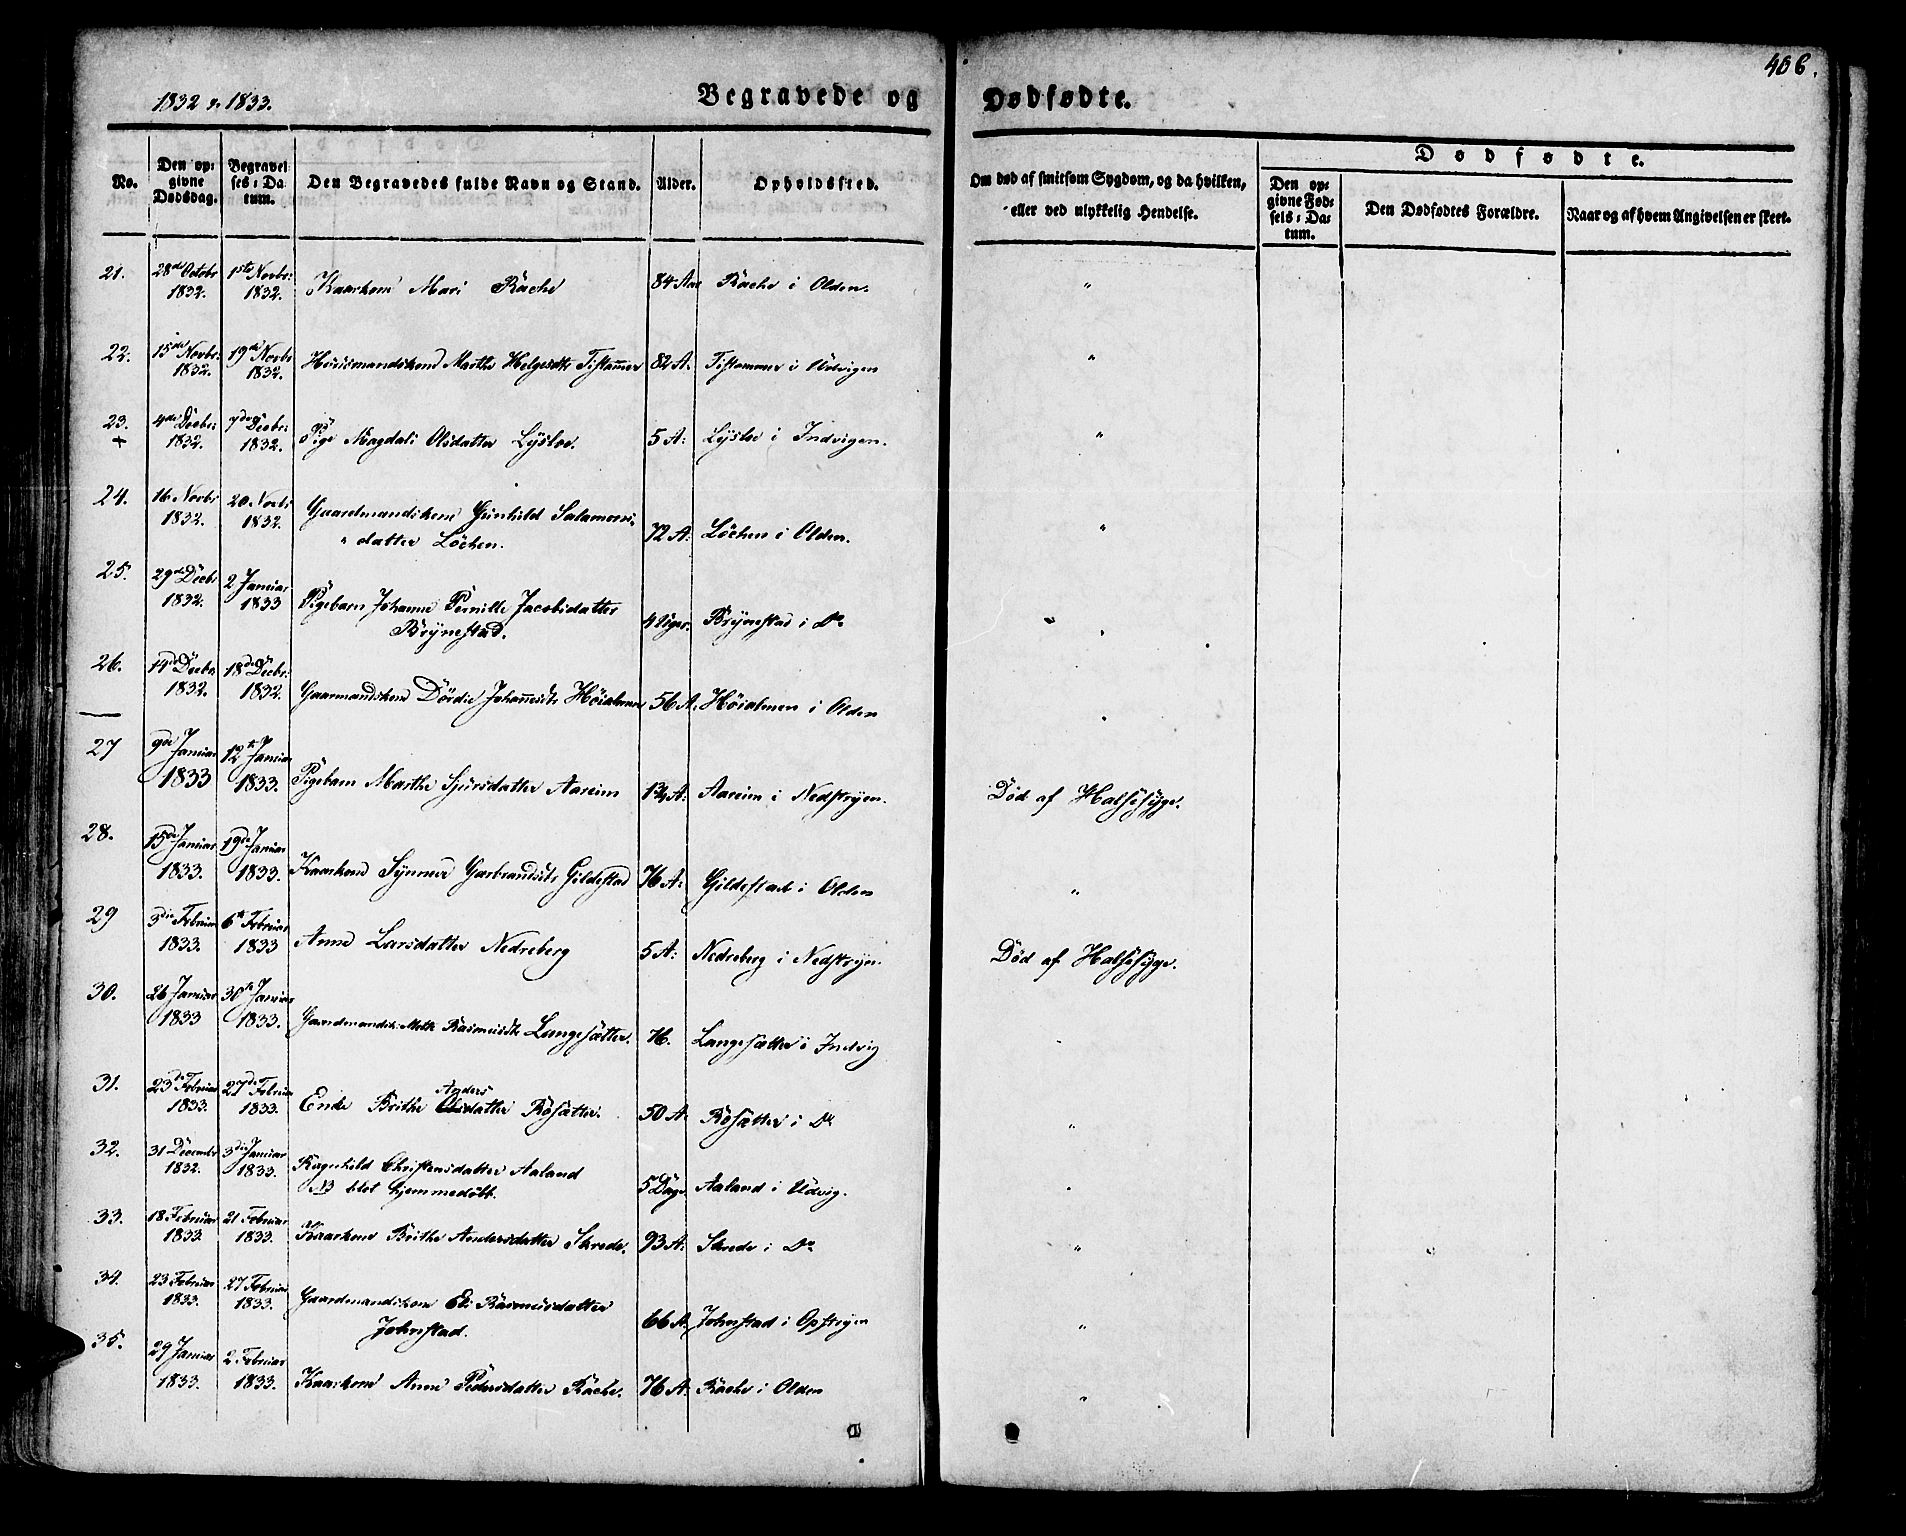 406.
1832 & 1833.
Begravede og Dødfødte.
No.
Den op-
givne
Dødsdag.
Begravel
ses-Da
tum.
Den Begravedes fulde Navn og Stand.
Alder.
Opholdssted.
Om død af smitsom Sygdom, og da hvilken,
eller ved ulykkelig Hendelse.
Dødfødte.
Den op-
givne Fød-
sels-Da-
tum.
Den Dødfødtes Forældre.
Naar og af hvem Angivelsen er skeet.
21. 28de Octobr 1832. 1ste Novbr: 1832. Kaarkone Mari Rache 84 Aar Rache i Olden. "
22. 15de Novbr: 1832. 19de Novbr 1832. Huusmandskone Marthe Helgesdtr Tistammer 82 A. Tistammer i Udvigen "
23. + 4de Decbr: 1832. 7de Decbr: 1832. Pige Magdali Olsdatter Lysloe. 5 A: Lysloe i Indvigen. "
24. 16 Novbr 1832. 20 Novbr 1832. Gaardmandskone Gunhild Salamons-
" datter Løchen. 72 A: Løchen i Olden. "
25. 29de Decbr 1832. 2 Januar 1833 Pigebarn Johanne Pernille Jacobsdatter
Brynestad. 4 Uger. Brynestad i Do "
26. 14de Decbr 1832. 18de Decbr: 1832. Gaarmandskone Dordie Johannesdtr Høialmen 56 A. Høialmen i Olden "
27 9de Januar 1833 12te Januar 1833. Pigebarn Marthe Sjursdatter Aareim 1¾ A: Aareim i Nedstryen. Død af Halsesyge.
28. 15de Januar 1833. 19de Januar 1833. Kaarkone Synneve Gerbrandsdtr Gildestad 76 A: Gildestad i Olden "
29 3die Februar 1833. 6te Februar 1833 Anne Larsdatter Nedreberg 5 A: Nedreberg i Nedstryn. Død af Halsesyge.
30. 26 Januar 1833 30te Januar 1833. Gaardmandsk: Mette Rasmusdtr Langesætter. 76. Langesætter i Indvig
31. 23de Februar 1833. 27de Februar 1833. Enke Brithe Anders datter Røsætter. 50 A. Røsætter i Do "
32. 31 Decembr 1832. 3die Januar 1833. Ragnhild Christensdatter Aaland
NB blot hjemmedøbt. 5 Dage Aaland i Udvig.
33. 18 Februar 1833. 21 Februar 1833. Kaarkone Brithe Andersdatter Skrede. 93 A: Skrede i Do "
34. 23 Februar 1833. 27 Februar 1833. Gaardmandskone Eli Rasmusdatter
Johnstad. 66 A. Johnstad i Opstryen "
35. 29 Januar 1833. 2 Februar 1833. Kaarkone Anne Pedersdatter Rache. 76 A: Rache i Olden "